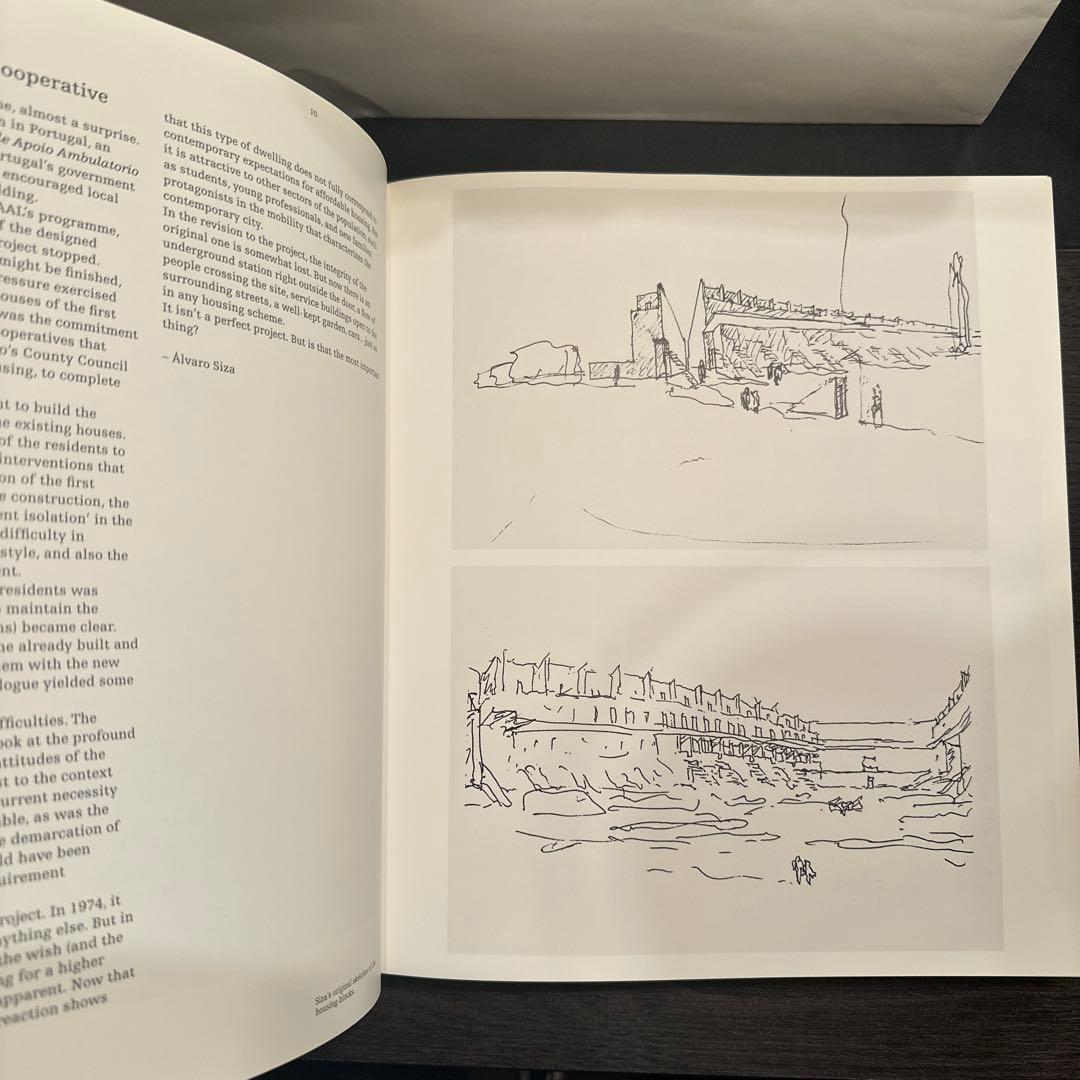 ooperative
e, almost a surprise.
n in Portugal, an
le Apoio Ambulatorio
rtugal's government
encouraged local
ding.
AAL's programme,
f the designed
roject stopped.
might be finished,
ressure exercised
ouses of the first
was the commitment
operatives that
o's County Council
sing, to complete
nt to build the
e existing houses.
of the residents to
interventions that
on of the first
e construction, the
ent isolation' in the
difficulty in
style, and also the
nt.
residents was
maintain the
ns) became clear.
he already built and
em with the new
logue yielded some
fficulties. The
ook at the profound
attitudes of the
st to the context
urrent necessity
ble, as was the
e demarcation of
ld have been
uirement
roject. In 1974, it
ything else. But in
the wish (and the
ng for a higher
apparent. Now that
reaction shows
10
that this type of dwelling does not fully correspond to
contemporary expectations for affordable housing. But
it is attractive to other sectors of the population, such
as students, young professionals, and new families:
protagonists in the mobility that characterizes the
contemporary city.
In the revision to the project, the integrity of the
original one is somewhat lost. But now there is an
underground station right outside the door, a flow of
people crossing the site, service buildings open to the
surrounding streets, a well-kept garden, cars... just as
in any housing scheme.
It isn't a perfect project. But is that the most important
thing?
– Álvaro Siza
Siza's original sketches of the
housing blocks.